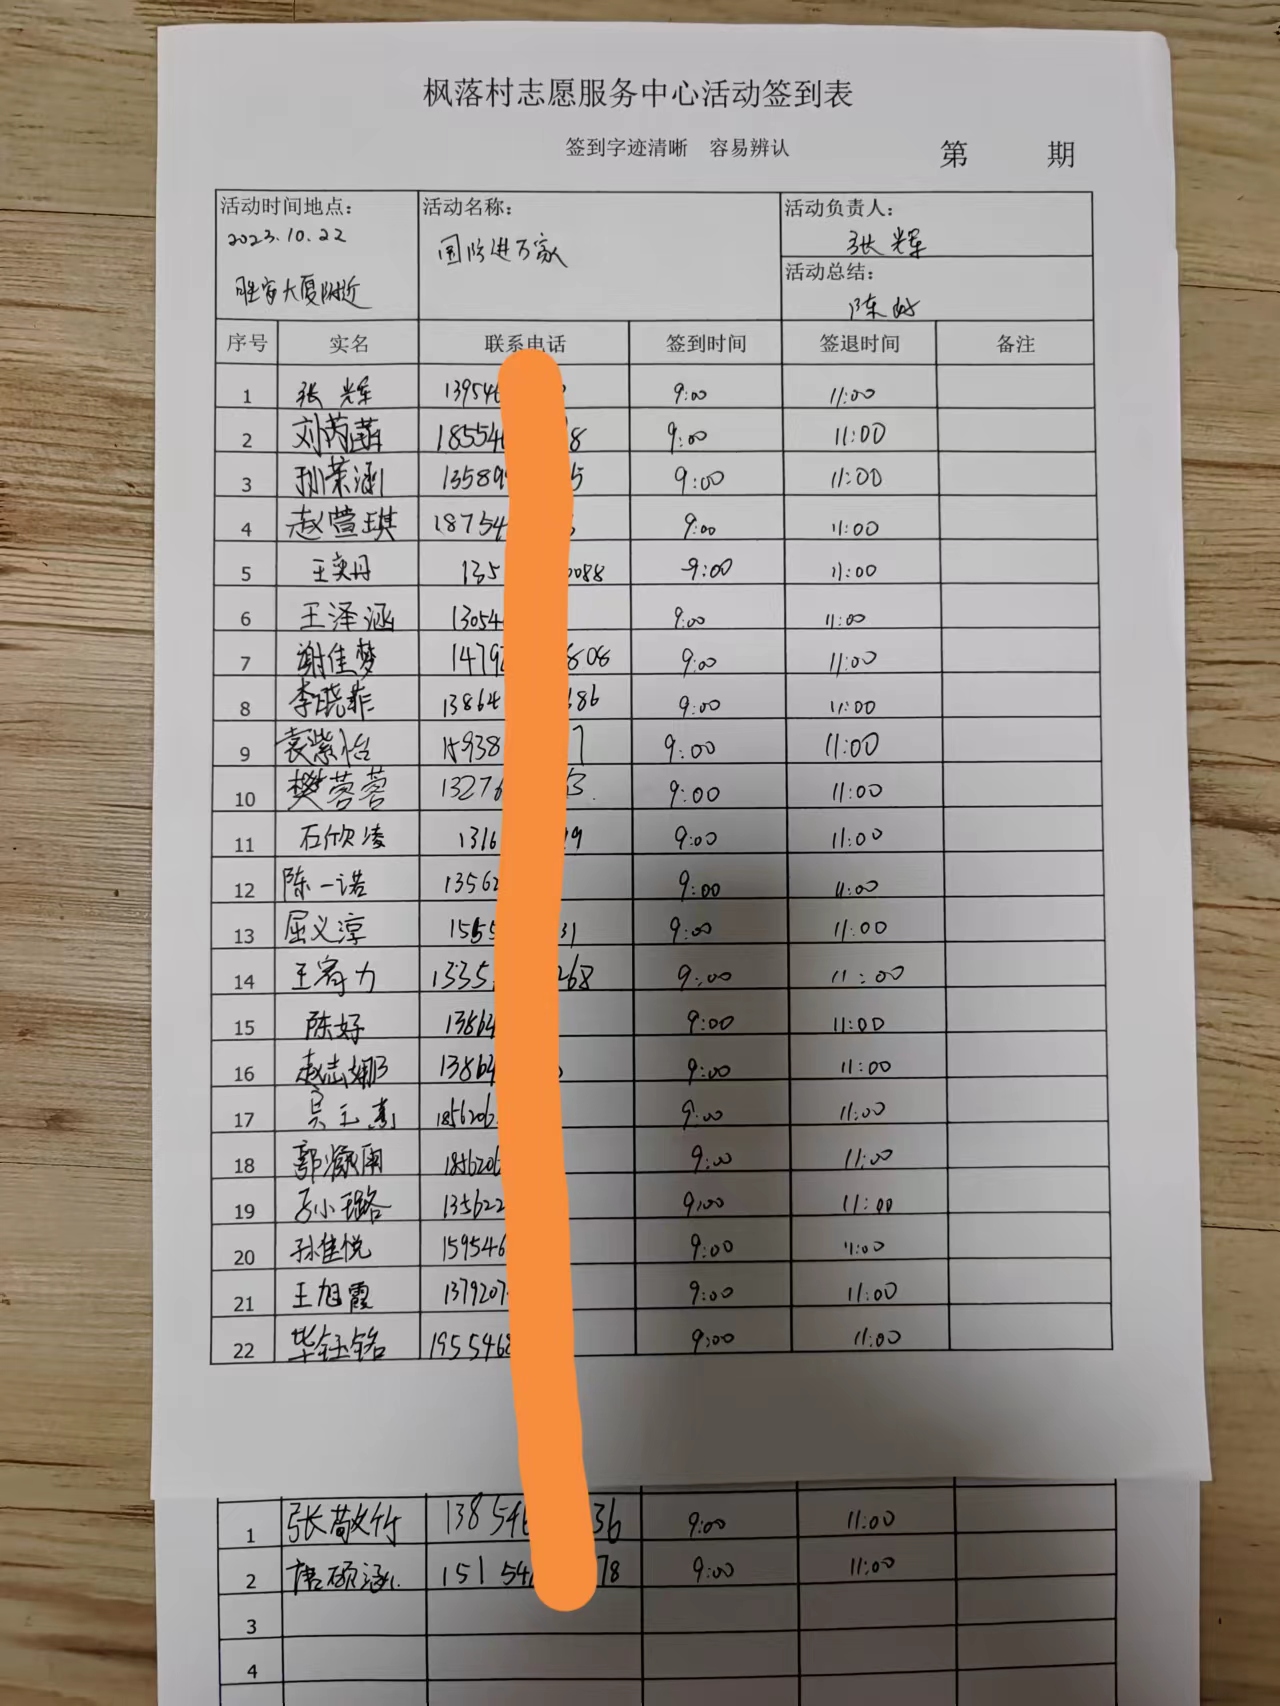 枫落村志愿服务中心活动签到表
签到字迹清晰 容易辨认 第 期
活动时间地点： 活动名称： 活动负责人：
2023.10.22 国防进万家 张辉
胜安大厦附近 活动总结：
陈好
序号 实名 联系电话 签到时间 签退时间 备注
1 张辉 139546 9:00 11:00
2 刘芮菲 18554 8 9:00 11:00
3 孙荣涵 13589 5 9:00 11:00
4 赵萱琪 18754 9:00 11:00
5 王奕丹 135 0088 9:00 11:00
6 王泽涵 13054 9:00 11:00
7 谢佳梦 1479 808 9:00 11:00
8 李晓菲 13864 686 9:00 11:00
9 袁紫怡 15938 7 9:00 11:00
10 樊蓉蓉 13276 3. 9:00 11:00
11 石欣凌 1316 99 9:00 11:00
12 陈一诺 13562 9:00 11:00
13 屈义淳 1555 31 9:00 11:00
14 王 力 1335 268 9:00 11:00
15 陈好 13864 9:00 11:00
16 赵志娜 13864 9:00 11:00
17 吴 1856206 9:00 11:00
18 郭 雨 1856206 9:00 11:00
19 小璐 135622 9:00 11:00
20 孙佳悦 159546 9:00 11:00
21 王旭霞 1379207 9:00 11:00
22 毕钰铭 1955468 9:00 11:00
1 张敬竹 138546 36 9:00 11:00
2 唐硕涵 151 54 78 9:00 11:00
3
4